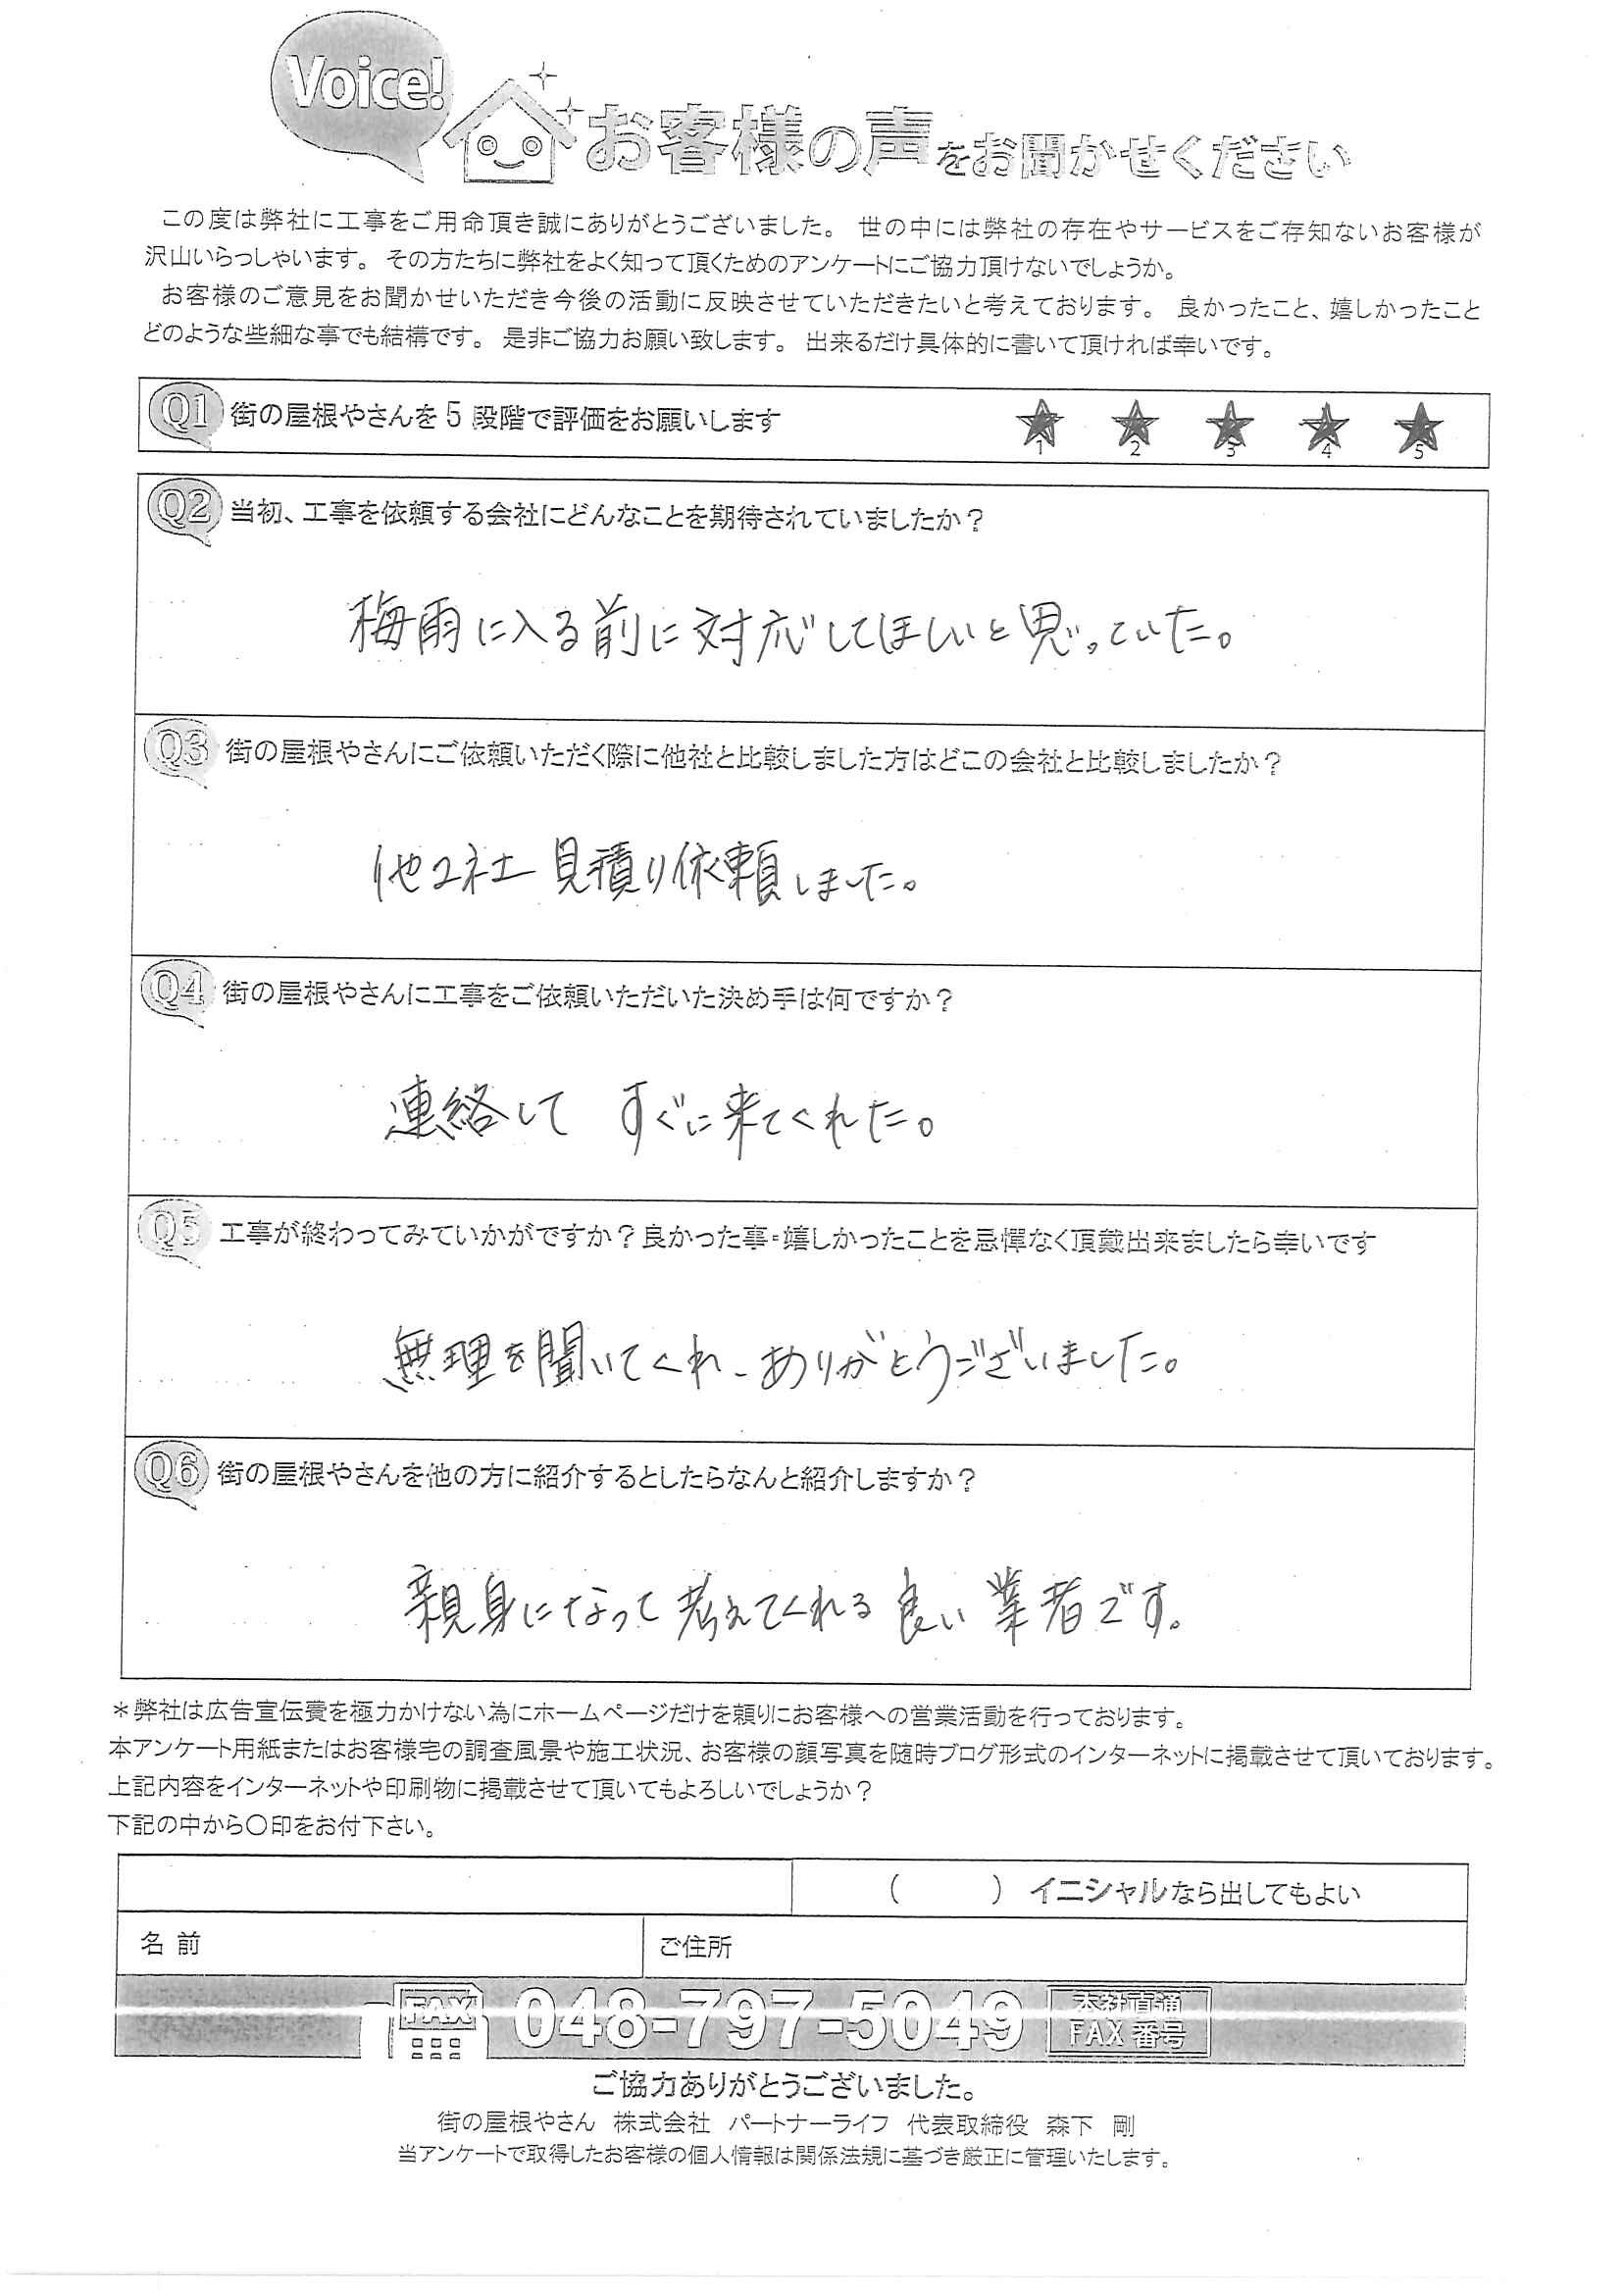 Voice!
お客様の声をお聞かせください
この度は弊社に工事をご用命頂き誠にありがとうございました。 世の中には弊社の存在やサービスをご存知ないお客様が
沢山いらっしゃいます。 その方たちに弊社をよく知って頂くためのアンケートにご協力頂けないでしょうか。
お客様のご意見をお聞かせいただき今後の活動に反映させていただきたいと考えております。 良かったこと、嬉しかったこと
どのような些細な事でも結構です。 是非ご協力お願い致します。 出来るだけ具体的に書いて頂ければ幸いです。
Q1 街の屋根やさんを5段階で評価をお願いします ★1 ★2 ★3 ★4 ★5
Q2 当初、工事を依頼する会社にどんなことを期待されていましたか？
梅雨に入る前に対応してほしいと思っていた。
Q3 街の屋根やさんにご依頼いただく際に他社と比較しました方はどこの会社と比較しましたか？
他2社 見積り依頼しました。
Q4 街の屋根やさんに工事をご依頼いただいた決め手は何ですか？
連絡して すぐに来てくれた。
Q5 工事が終わってみていかがですか？良かった事・嬉しかったことを忌憚なく頂戴出来ましたら幸いです
無理を聞いてくれ、ありがとうございました。
Q6 街の屋根やさんを他の方に紹介するとしたらなんと紹介しますか？
親身になって考えてくれる良い業者です。
＊弊社は広告宣伝費を極力かけない為にホームページだけを頼りにお客様への営業活動を行っております。
本アンケート用紙またはお客様宅の調査風景や施工状況、お客様の顔写真を随時ブログ形式のインターネットに掲載させて頂いております。
上記内容をインターネットや印刷物に掲載させて頂いてもよろしいでしょうか？
下記の中から〇印をお付下さい。
（　　　）イニシャルなら出してもよい
名前 ご住所
FAX 048-797-5049 本社直通
FAX 番号
ご協力ありがとうございました。
街の屋根やさん 株式会社 パートナーライフ 代表取締役 森下 剛
当アンケートで取得したお客様の個人情報は関係法規に基づき厳正に管理いたします。